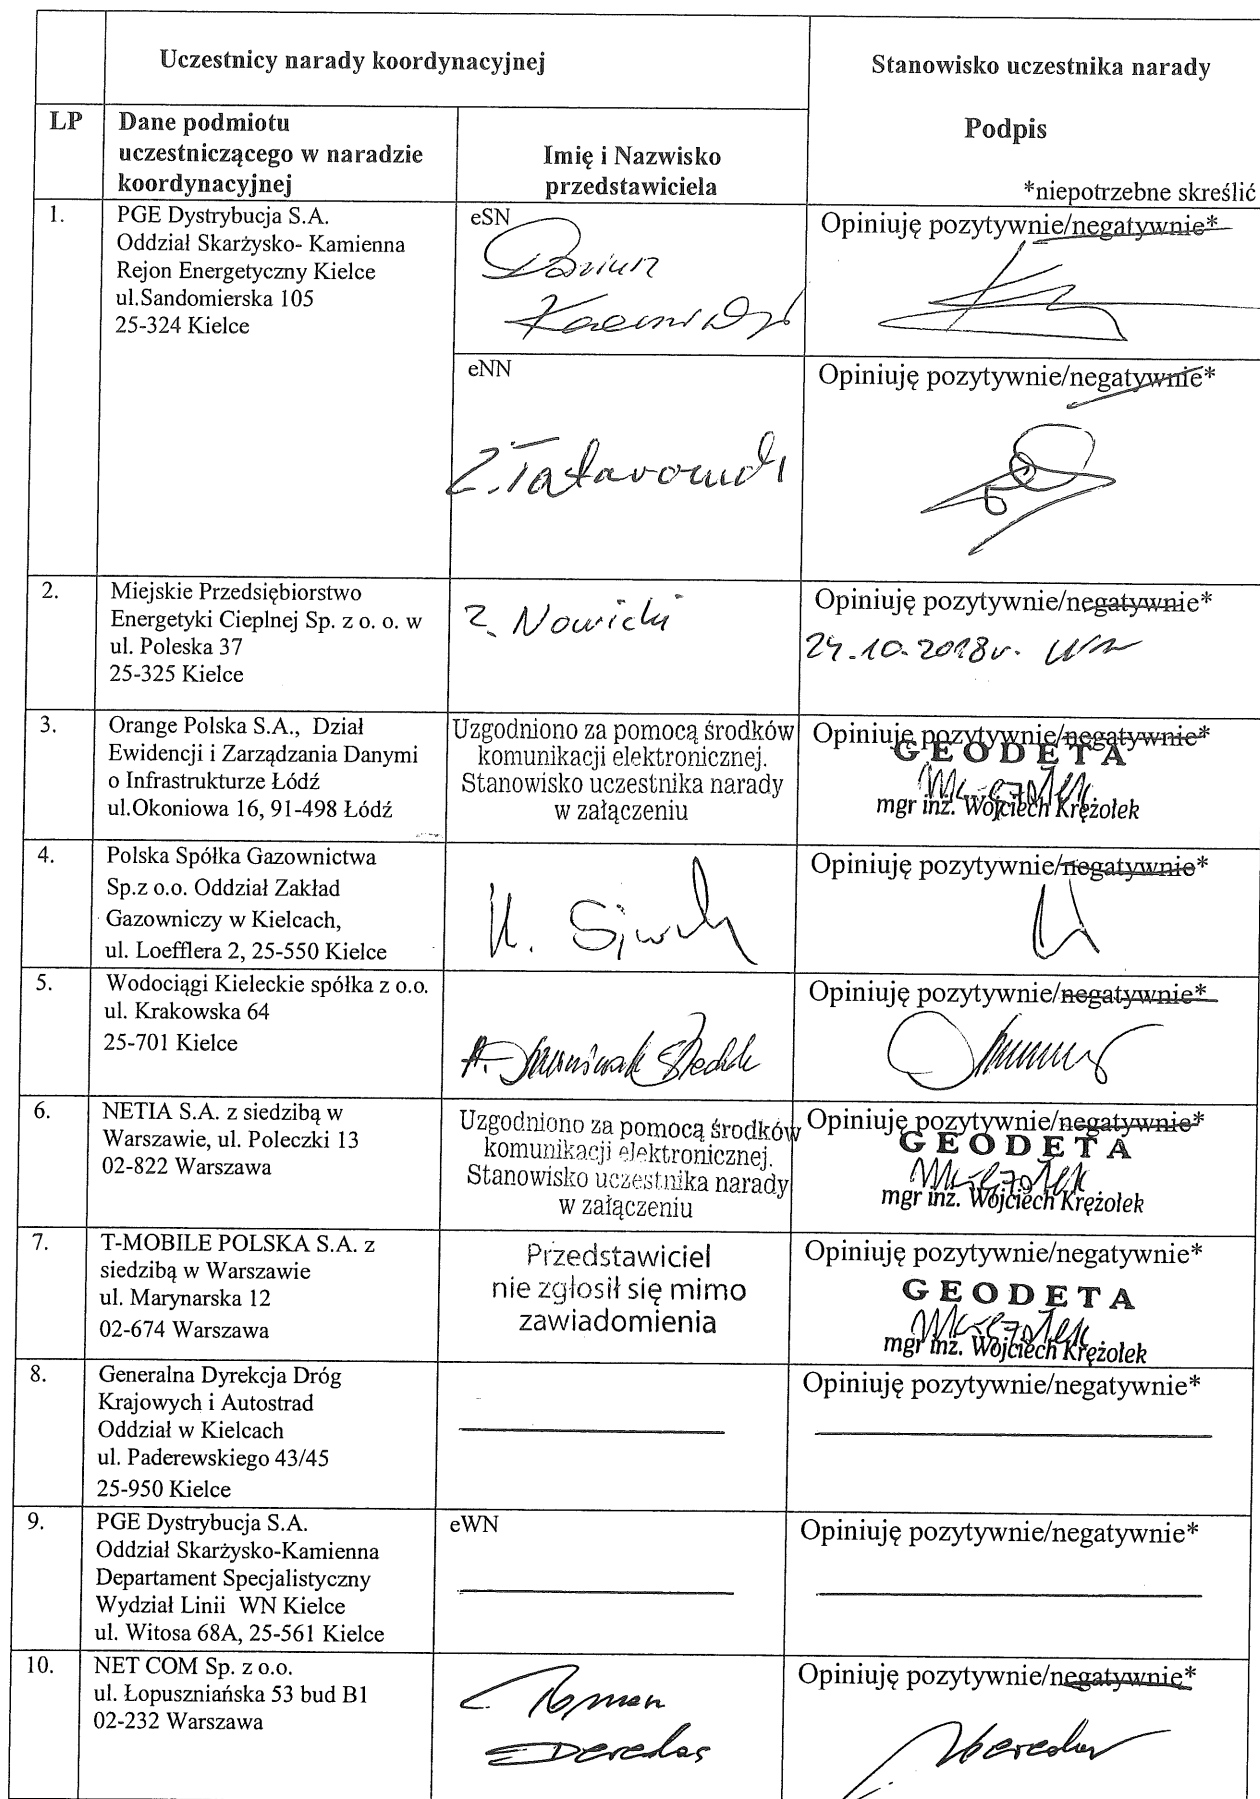 Uczestnicy narady koordynacyjnej
Stanowisko uczestnika narady
Podpis
*niepotrzebne skreślić
LP
Dane podmiotu
uczestniczącego w naradzie
koordynacyjnej
Imię i Nazwisko
przedstawiciela
1.
PGE Dystrybucja S.A.
Oddział Skarżysko- Kamienna
Rejon Energetyczny Kielce
ul.Sandomierska 105
25-324 Kielce
eSN
Opiniuję pozytywnie/negatywnie*
eNN
Opiniuję pozytywnie/negatywnie*
2.
Miejskie Przedsiębiorstwo
Energetyki Cieplnej Sp. z o. o. w
ul. Poleska 37
25-325 Kielce
Z. Nowicki
Opiniuję pozytywnie/negatywnie*
24.10.2018r.
3.
Orange Polska S.A., Dział
Ewidencji i Zarządzania Danymi
o Infrastrukturze Łódź
ul.Okoniowa 16, 91-498 Łódź
Uzgodniono za pomocą środków
komunikacji elektronicznej.
Stanowisko uczestnika narady
w załączeniu
Opiniuję pozytywnie/negatywnie*
GEODETA
mgr inż. Wojciech Krężołek
4.
Polska Spółka Gazownictwa
Sp.z o.o. Oddział Zakład
Gazowniczy w Kielcach,
ul. Loefflera 2, 25-550 Kielce
Opiniuję pozytywnie/negatywnie*
5.
Wodociągi Kieleckie spółka z o.o.
ul. Krakowska 64
25-701 Kielce
Opiniuję pozytywnie/negatywnie*
6.
NETIA S.A. z siedzibą w
Warszawie, ul. Poleczki 13
02-822 Warszawa
Uzgodniono za pomocą środków
komunikacji elektronicznej.
Stanowisko uczestnika narady
w załączeniu
Opiniuję pozytywnie/negatywnie*
GEODETA
mgr inż. Wojciech Krężołek
7.
T-MOBILE POLSKA S.A. z
siedzibą w Warszawie
ul. Marynarska 12
02-674 Warszawa
Przedstawiciel
nie zgłosił się mimo
zawiadomienia
Opiniuję pozytywnie/negatywnie*
GEODETA
mgr inż. Wojciech Krężołek
8.
Generalna Dyrekcja Dróg
Krajowych i Autostrad
Oddział w Kielcach
ul. Paderewskiego 43/45
25-950 Kielce
Opiniuję pozytywnie/negatywnie*
9.
PGE Dystrybucja S.A.
Oddział Skarżysko-Kamienna
Departament Specjalistyczny
Wydział Linii WN Kielce
ul. Witosa 68A, 25-561 Kielce
eWN
Opiniuję pozytywnie/negatywnie*
10.
NET COM Sp. z o.o.
ul. Łopuszniańska 53 bud B1
02-232 Warszawa
Roman
Deredas
Opiniuję pozytywnie/negatywnie*